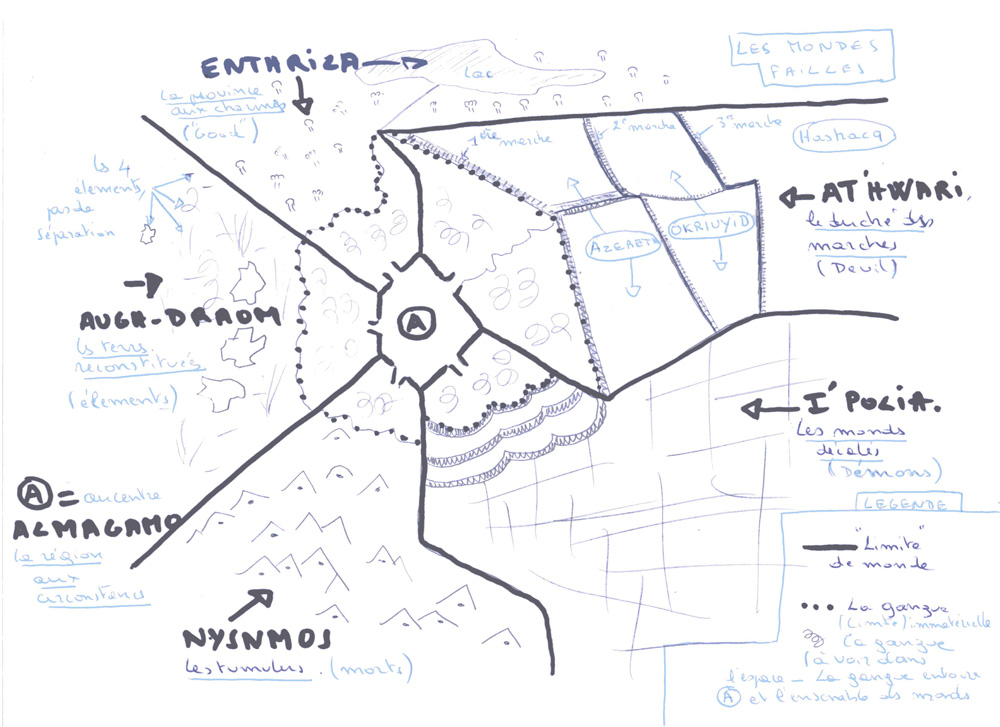 LES MONDES
FAILLES
ENTHRIZA
Lac
La province
aux champs
("Goud")
1ère marche
2e marche
3e marche
Hashacq
les 4
éléments,
pas de
séparation
AT'HWARI,
le duché des
marches
(Deuil)
AZERETH
OKRIUYID
AUGH-DRAOM
les terres
reconstituées
(éléments)
A
I'POLIA.
Les monds
décalés
(Démons)
A = au centre
ALMAGAMO
la région
aux
circonstances
NYSNMOS
Les tumulus. (morts)
LEGENDE
"Limite"
de monde
La gangue
(Limite) immatérielle
La gangue
(à voir dans
l'espace - La gangue entoure
A et l'ensemble des monds